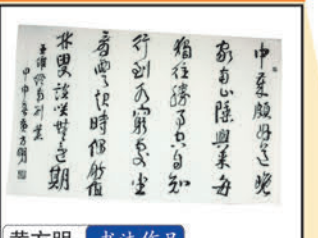 中歲頗好道晚
家南山陲興來每
獨往勝事空自知
行到水窮處坐
看雲起時偶然值
林叟談笑無還期
王維終南別業
黄方明 书法作品